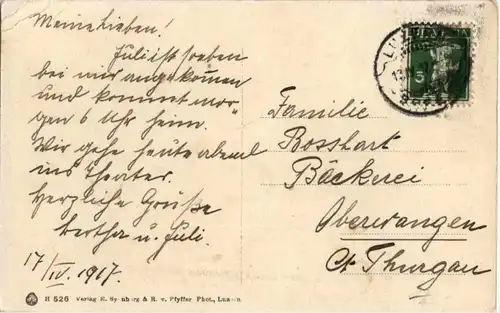 Meine Lieben!
Juli ist soeben
bei mir angekommen
und kommt mor-
gen 6 Uhr heim.
Wir gehe heute abend
ins Theater.
Herzliche Grüsse
Bertha u. Juli.
17/IV. 1917.
Familie
Bosshart
Bäckerei
Oberwangen
Ct. Thurgau
LUZERN
5
H 526 Verlag E. Synnberg & R. v. Pfyffer Phot., Luzern.